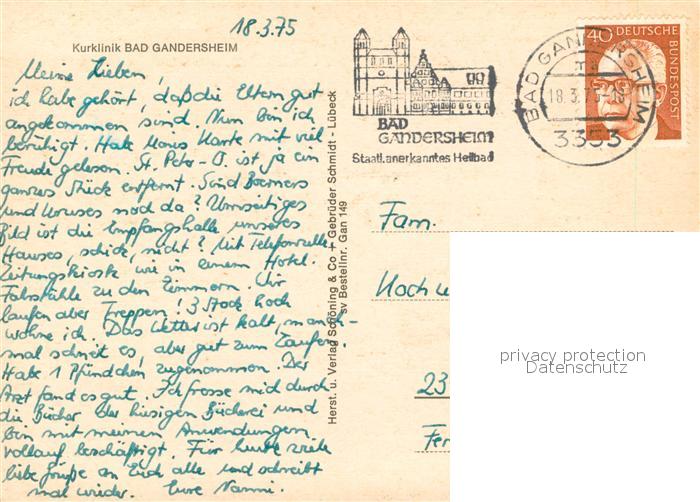 18.3.75
Kurklinik BAD GANDERSHEIM
Meine Lieben,
ich habe gehört, daß die Eltern gut
angekommen sind. Nun bin ich
beruhigt. Habe Karte mit viel
Freude gelesen. St. Peter-O. ist ja ein
ganzes Stück entfernt. Sind
und noch da? Umseitiges
Bild ist die Empfangshalle unseres
Hauses, schick, nicht? Mit Telefonzelle
Zeitungskiosk wie in einem Hotel.
Fahrstühle zu den Zimmern. Wir
laufen aber Treppen! 3 Stock hoch
wohne ich. Das Wetter ist kalt, manch-
mal schneit es, aber gut zum Laufen.
Habe 1 Pfündchen zugenommen. Der
Arzt fand es gut. Ich fresse mich durch
die Bücher der hiesigen Bücherei und
bin mit meinen Anwendungen
vollauf beschäftigt. Für heute viele
liebe Grüße an Euch alle und schreibt
mal wieder. Eure Nanni.
Herst. u. Verlag Schöning & Co + Gebrüder Schmidt - Lübeck
sv Bestellnr. Gan 149
BAD
GANDERSHEIM
Staatl. anerkanntes Heilbad
BAD GANDERSHEIM
18.3.75-12
3353
40 DEUTSCHE
BUNDESPOST
Fam.
23
privacy protection
Datenschutz